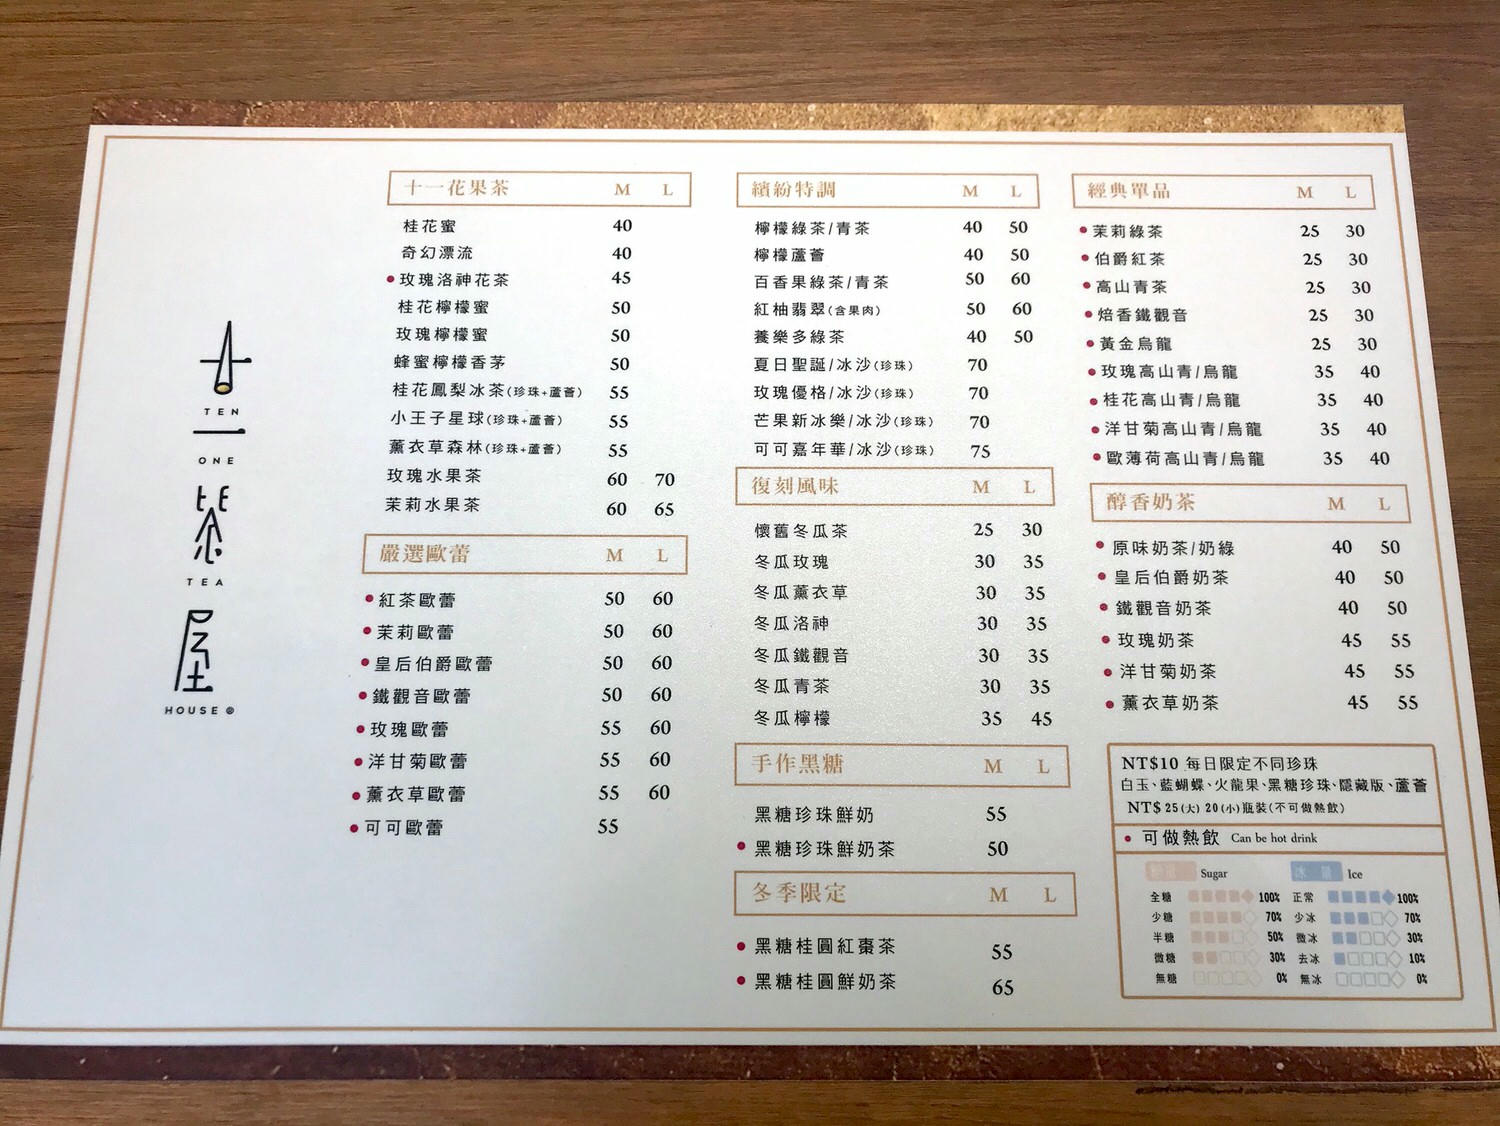 十
TEN
一
ONE
茶
TEA
屋
HOUSE ®
十一花果茶 M L
桂花蜜 40
奇幻漂流 40
• 玫瑰洛神花茶 45
桂花檸檬蜜 50
玫瑰檸檬蜜 50
蜂蜜檸檬香茅 50
桂花鳳梨冰茶(珍珠+蘆薈) 55
小王子星球(珍珠+蘆薈) 55
薰衣草森林(珍珠+蘆薈) 55
玫瑰水果茶 60 70
茉莉水果茶 60 65
嚴選歐蕾 M L
• 紅茶歐蕾 50 60
• 茉莉歐蕾 50 60
• 皇后伯爵歐蕾 50 60
• 鐵觀音歐蕾 50 60
• 玫瑰歐蕾 55 60
• 洋甘菊歐蕾 55 60
• 薰衣草歐蕾 55 60
• 可可歐蕾 55
繽紛特調 M L
檸檬綠茶/青茶 40 50
檸檬蘆薈 40 50
百香果綠茶/青茶 50 60
紅柚翡翠(含果肉) 50 60
養樂多綠茶 40 50
夏日聖誕/冰沙(珍珠) 70
玫瑰優格/冰沙(珍珠) 70
芒果新冰樂/冰沙(珍珠) 70
可可嘉年華/冰沙(珍珠) 75
復刻風味 M L
懷舊冬瓜茶 25 30
冬瓜玫瑰 30 35
冬瓜薰衣草 30 35
冬瓜洛神 30 35
冬瓜鐵觀音 30 35
冬瓜青茶 30 35
冬瓜檸檬 35 45
手作黑糖 M L
黑糖珍珠鮮奶 55
• 黑糖珍珠鮮奶茶 50
冬季限定 M L
• 黑糖桂圓紅棗茶 55
• 黑糖桂圓鮮奶茶 65
經典單品 M L
• 茉莉綠茶 25 30
• 伯爵紅茶 25 30
• 高山青茶 25 30
• 焙香鐵觀音 25 30
• 黃金烏龍 25 30
• 玫瑰高山青/烏龍 35 40
• 桂花高山青/烏龍 35 40
• 洋甘菊高山青/烏龍 35 40
• 歐薄荷高山青/烏龍 35 40
醇香奶茶 M L
• 原味奶茶/奶綠 40 50
• 皇后伯爵奶茶 40 50
• 鐵觀音奶茶 40 50
• 玫瑰奶茶 45 55
• 洋甘菊奶茶 45 55
• 薰衣草奶茶 45 55
NT$10 每日限定不同珍珠
白玉、藍蝴蝶、火龍果、黑糖珍珠、隱藏版、蘆薈
NT$ 25(大) 20(小)瓶裝(不可做熱飲)
• 可做熱飲 Can be hot drink
糖量 Sugar 冰量 Ice
全糖 100% 正常 100%
少糖 70% 少冰 70%
半糖 50% 微冰 30%
微糖 30% 去冰 10%
無糖 0% 無冰 0%